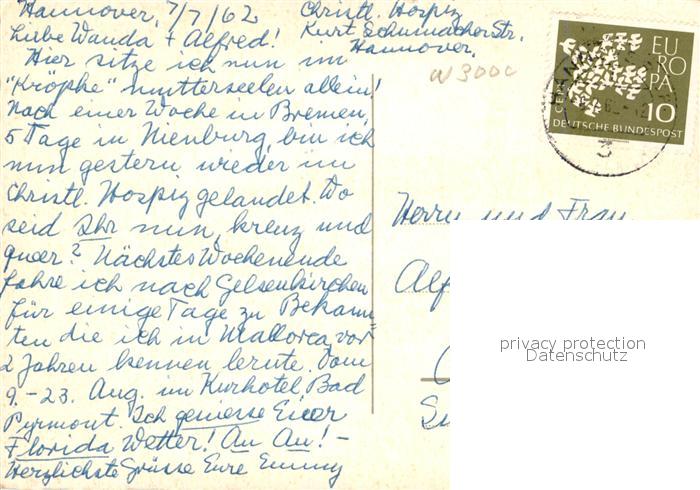 Hannover, 7/7/62
Christl. Hospiz
Kurt Schumacher Str.
Hannover,
Liebe Wanda + Alfred!
Hier sitze ich nun im
"Kröphe" mutterseelen allein!
Nach einer Woche in Bremen,
5 Tage in Nienburg, bin ich
nun gestern wieder im
Christl. Hospiz gelandet. Wo
seid Ihr nun, kreuz und
queer? Nächstes Wochenende
fahre ich nach Gelsenkirchen
für einige Tage zu Bekann-
ten die ich in Mallorca vor
2 Jahren kennen lernte. Vom
9.-23. Aug. im Kurhotel Bad
Pyrmont. Ich geniesse Euer
Florida Wetter! Au Au! -
Herzlichste Grüsse Eure Emmy
W 300c
EUROPA
CEPT
10
DEUTSCHE BUNDESPOST
3
Herrn und Frau
Alf
privacy protection
Datenschutz